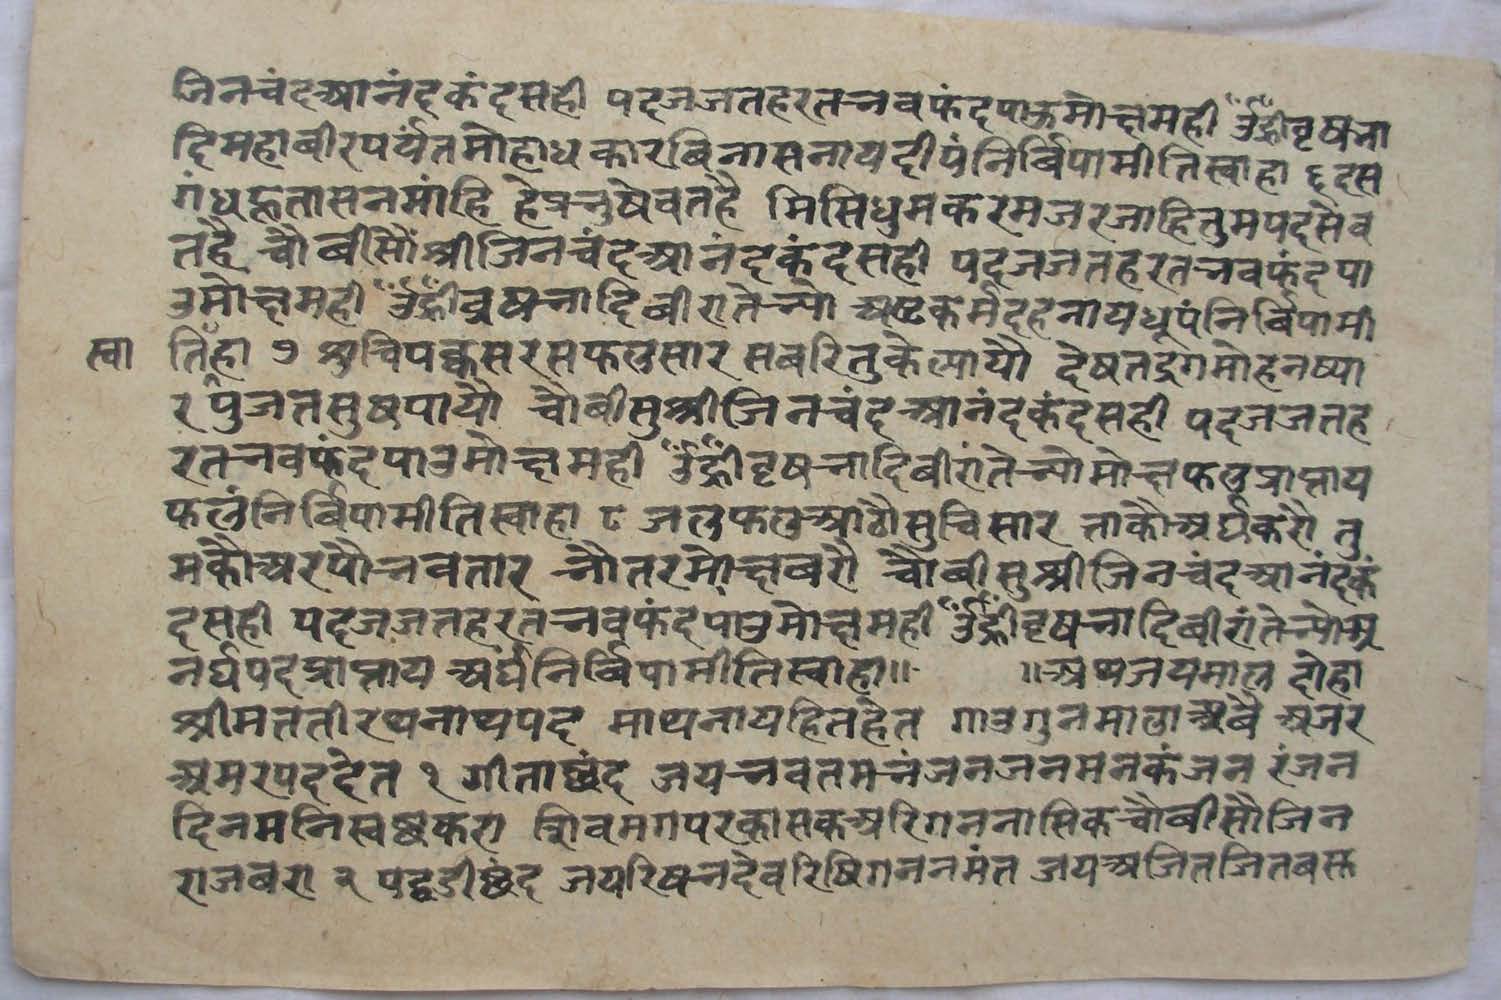 जिनचंदआनंदकंदसही पदजजतहरतनवफंदपाऊमोक्षमही ॐह्रींवृषना
दिमहावीरपर्यंतमोहाधकारबिनासनायदीपंनिर्बिपामीतिस्वाहा ६ दस
गंधहूतासनमांहि हेप्रनुषेवतहै मिसिधुमकरमजरजाहितुमपदसेव
तहै चौबीसौंश्रीजिनचंदआनंदकंदसही पदजजतहरतनवफंदपा
उमोक्षमही ॐह्रींवृषनादिबीरातेन्यो अष्टकर्मदहनायधूपंनिर्बिपामी
स्वा तिहा ७ श्रुचिपक्कसरसफलसार सबरितुकेल्यायो देषतद्रगमोहनप्या
रपुजतसुषपायौ चौबीसुश्रीजिनचंदआनंदकंदसही पदजजतह
रतनवफंदपाउमोक्षमही ॐह्रींवृषनादिबीरांतेन्योमोक्षफलप्राप्ताय
फलंनिर्बिपामीतिस्वाहा ८ जलफलआठौसुचिसार ताकौअर्घकरौ तु
मकौअरपौनवतार नौतरमोक्षबरौ चौबीसुश्रीजिनचंदआनंदकं
दसही पदजजतहरतनवफंदपाउमोक्षमही ॐह्रींवृषनादिबीरांतेन्योअ
नर्घपदप्राप्ताय अर्घंनिर्बिपामीतिस्वाहा॥ ॥अथजयमाल दोहा
श्रीमततीरथनाथपद माथनायहितहेत गाउगुनमालाअबै अजर
अमरपददेत १ गीताछंद जयनवतमनंजनजनमनकंजन रंजन
दिनमनिस्वछकरा शिवमगपरकासकअरिगननासिकचौबीसौजिन
राजबरा २ पद्धडीछंद जयरिषनदेवरिषिगननमंत जयअजितजितबस्त